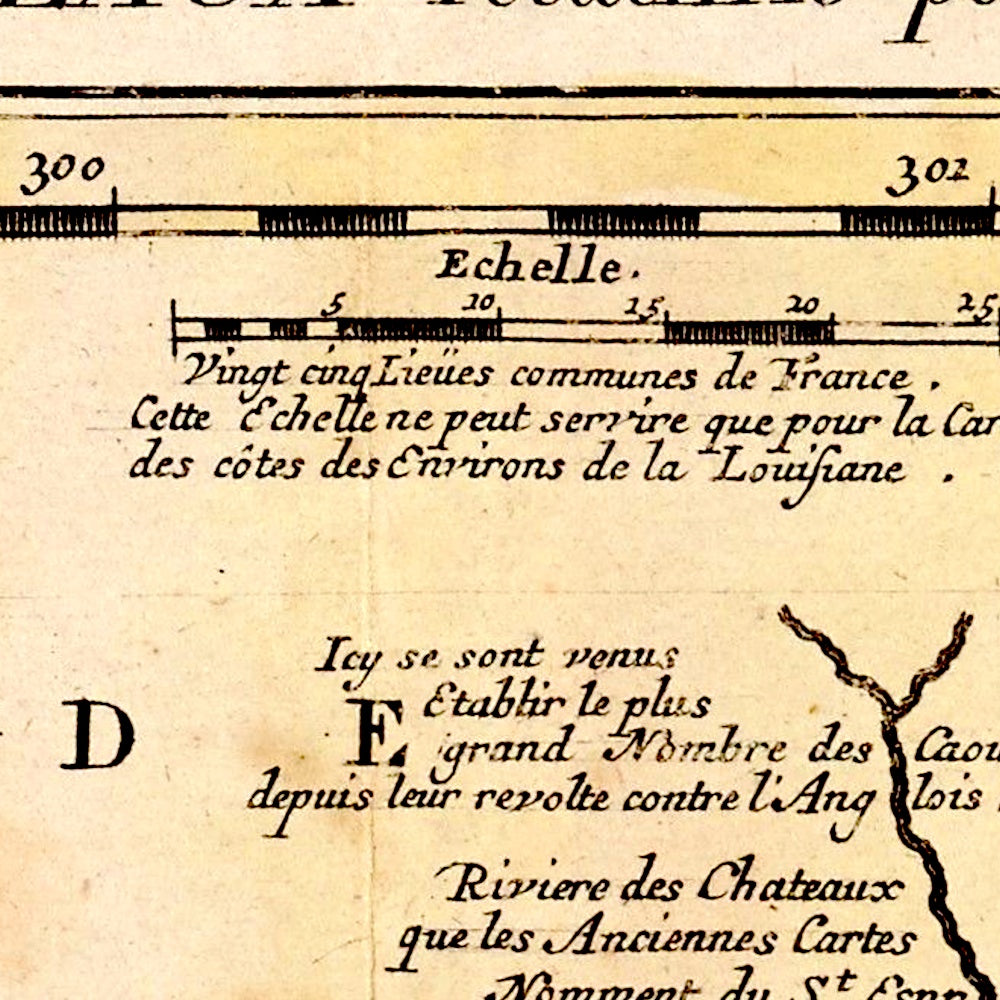 300 302
Echelle.
5 10 15 20 25
Vingt cinq Lieües communes de France .
Cette Echelle ne peut servire que pour la Car
des côtes des Environs de la Louiſiane .
Icy se sont venus
Etablir le plus
D E grand Nombre des Caou
depuis leur revolte contre l'Anglois .
Riviere des Chateaux
que les Anciennes Cartes
Nomment du St Espri